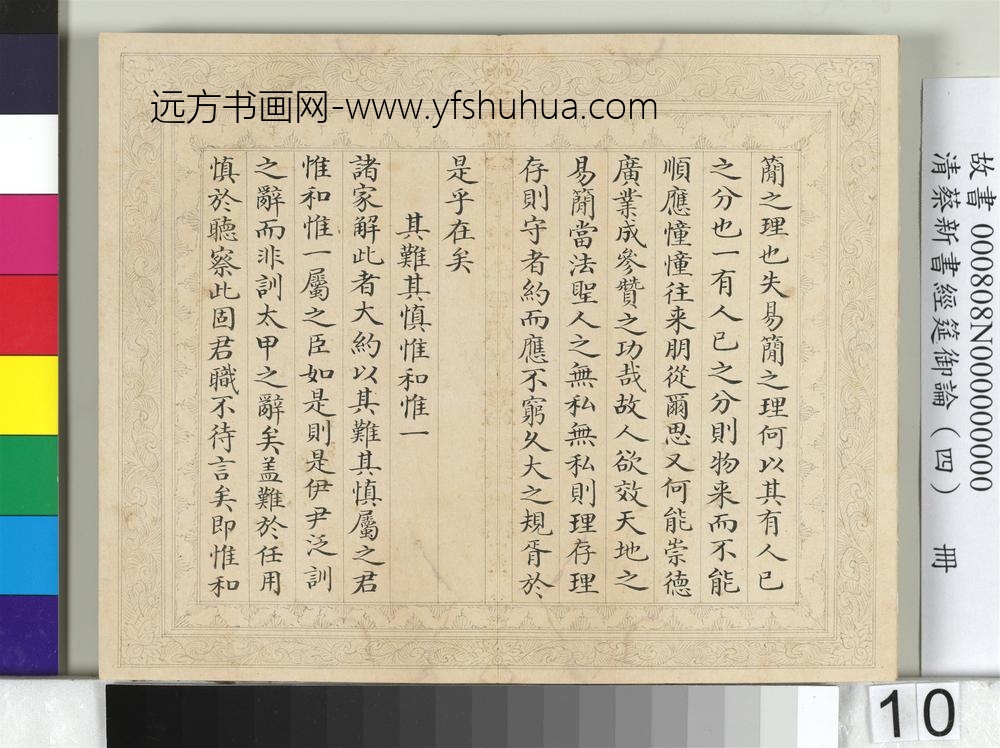 远方书画网-www.yfshuhua.com
簡之理也失易簡之理何以其有人已
之分也一有人已之分則物来而不能
順應憧憧往来朋從爾思又何能崇德
廣業成參贊之功哉故人欲效天地之
易簡當法聖人之無私無私則理存理
存則守者約而應不窮久大之規胥於
是乎在矣
其難其慎惟和惟一
諸家解此者大約以其難其慎屬之君
惟和惟一屬之臣如是則是伊尹泛訓
之辭而非訓太甲之辭矣盖難於任用
慎於聽察此固君職不待言矣即惟和
故書 000808N000000000
清蔡新書經筵御論（四） 冊
10